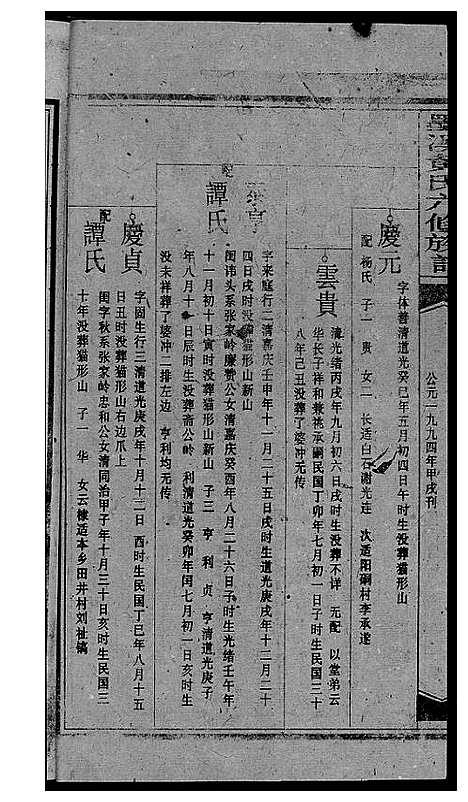 墨溪黄氏六修族譜
公元一九九四年甲戌刊
慶元
字体善清道光癸已年五月初四日午时生没葬猫形山
配 杨氏 子一 贵 女二 长适白石谢光连 次适阳硐村李承遂
雲貴
清光绪丙戌年九月初六日戌时生没葬不详 无配 以堂弟云
华长子祥和兼祧承嗣民国丁卯年七月初一日子时生民国三十
八年己丑没葬了婆冲无传
字来庭行二清嘉庆壬申年十一月二十五日戌时生道光庚戌年十二月二十
四日戌时没葬猫形山新山
配
譚氏
闺讳头系张家岭庆赞公女清嘉庆癸酉年八月二十六日子时生光绪壬午年
十一月初十日寅时没葬猫形山新山 子三 亨 利 贞 亨清道光庚子
年八月十 日辰时生没葬斋公岭 利清道光癸卯年闰七月初一日亥时生
没未祥葬了婆冲二排左边 亨利均无传
慶貞
字固生行三清道光庚戌年十月十三日 酉时生民国丁巳年八月十五
日丑时没葬猫形山右边爪上
配
譚氏
闺字秋系张家岭忠和公女清同治甲子年十月三十日亥时生民国三
十年没葬猫形山 子一 华 女云棣适本乡田井村刘祉镐